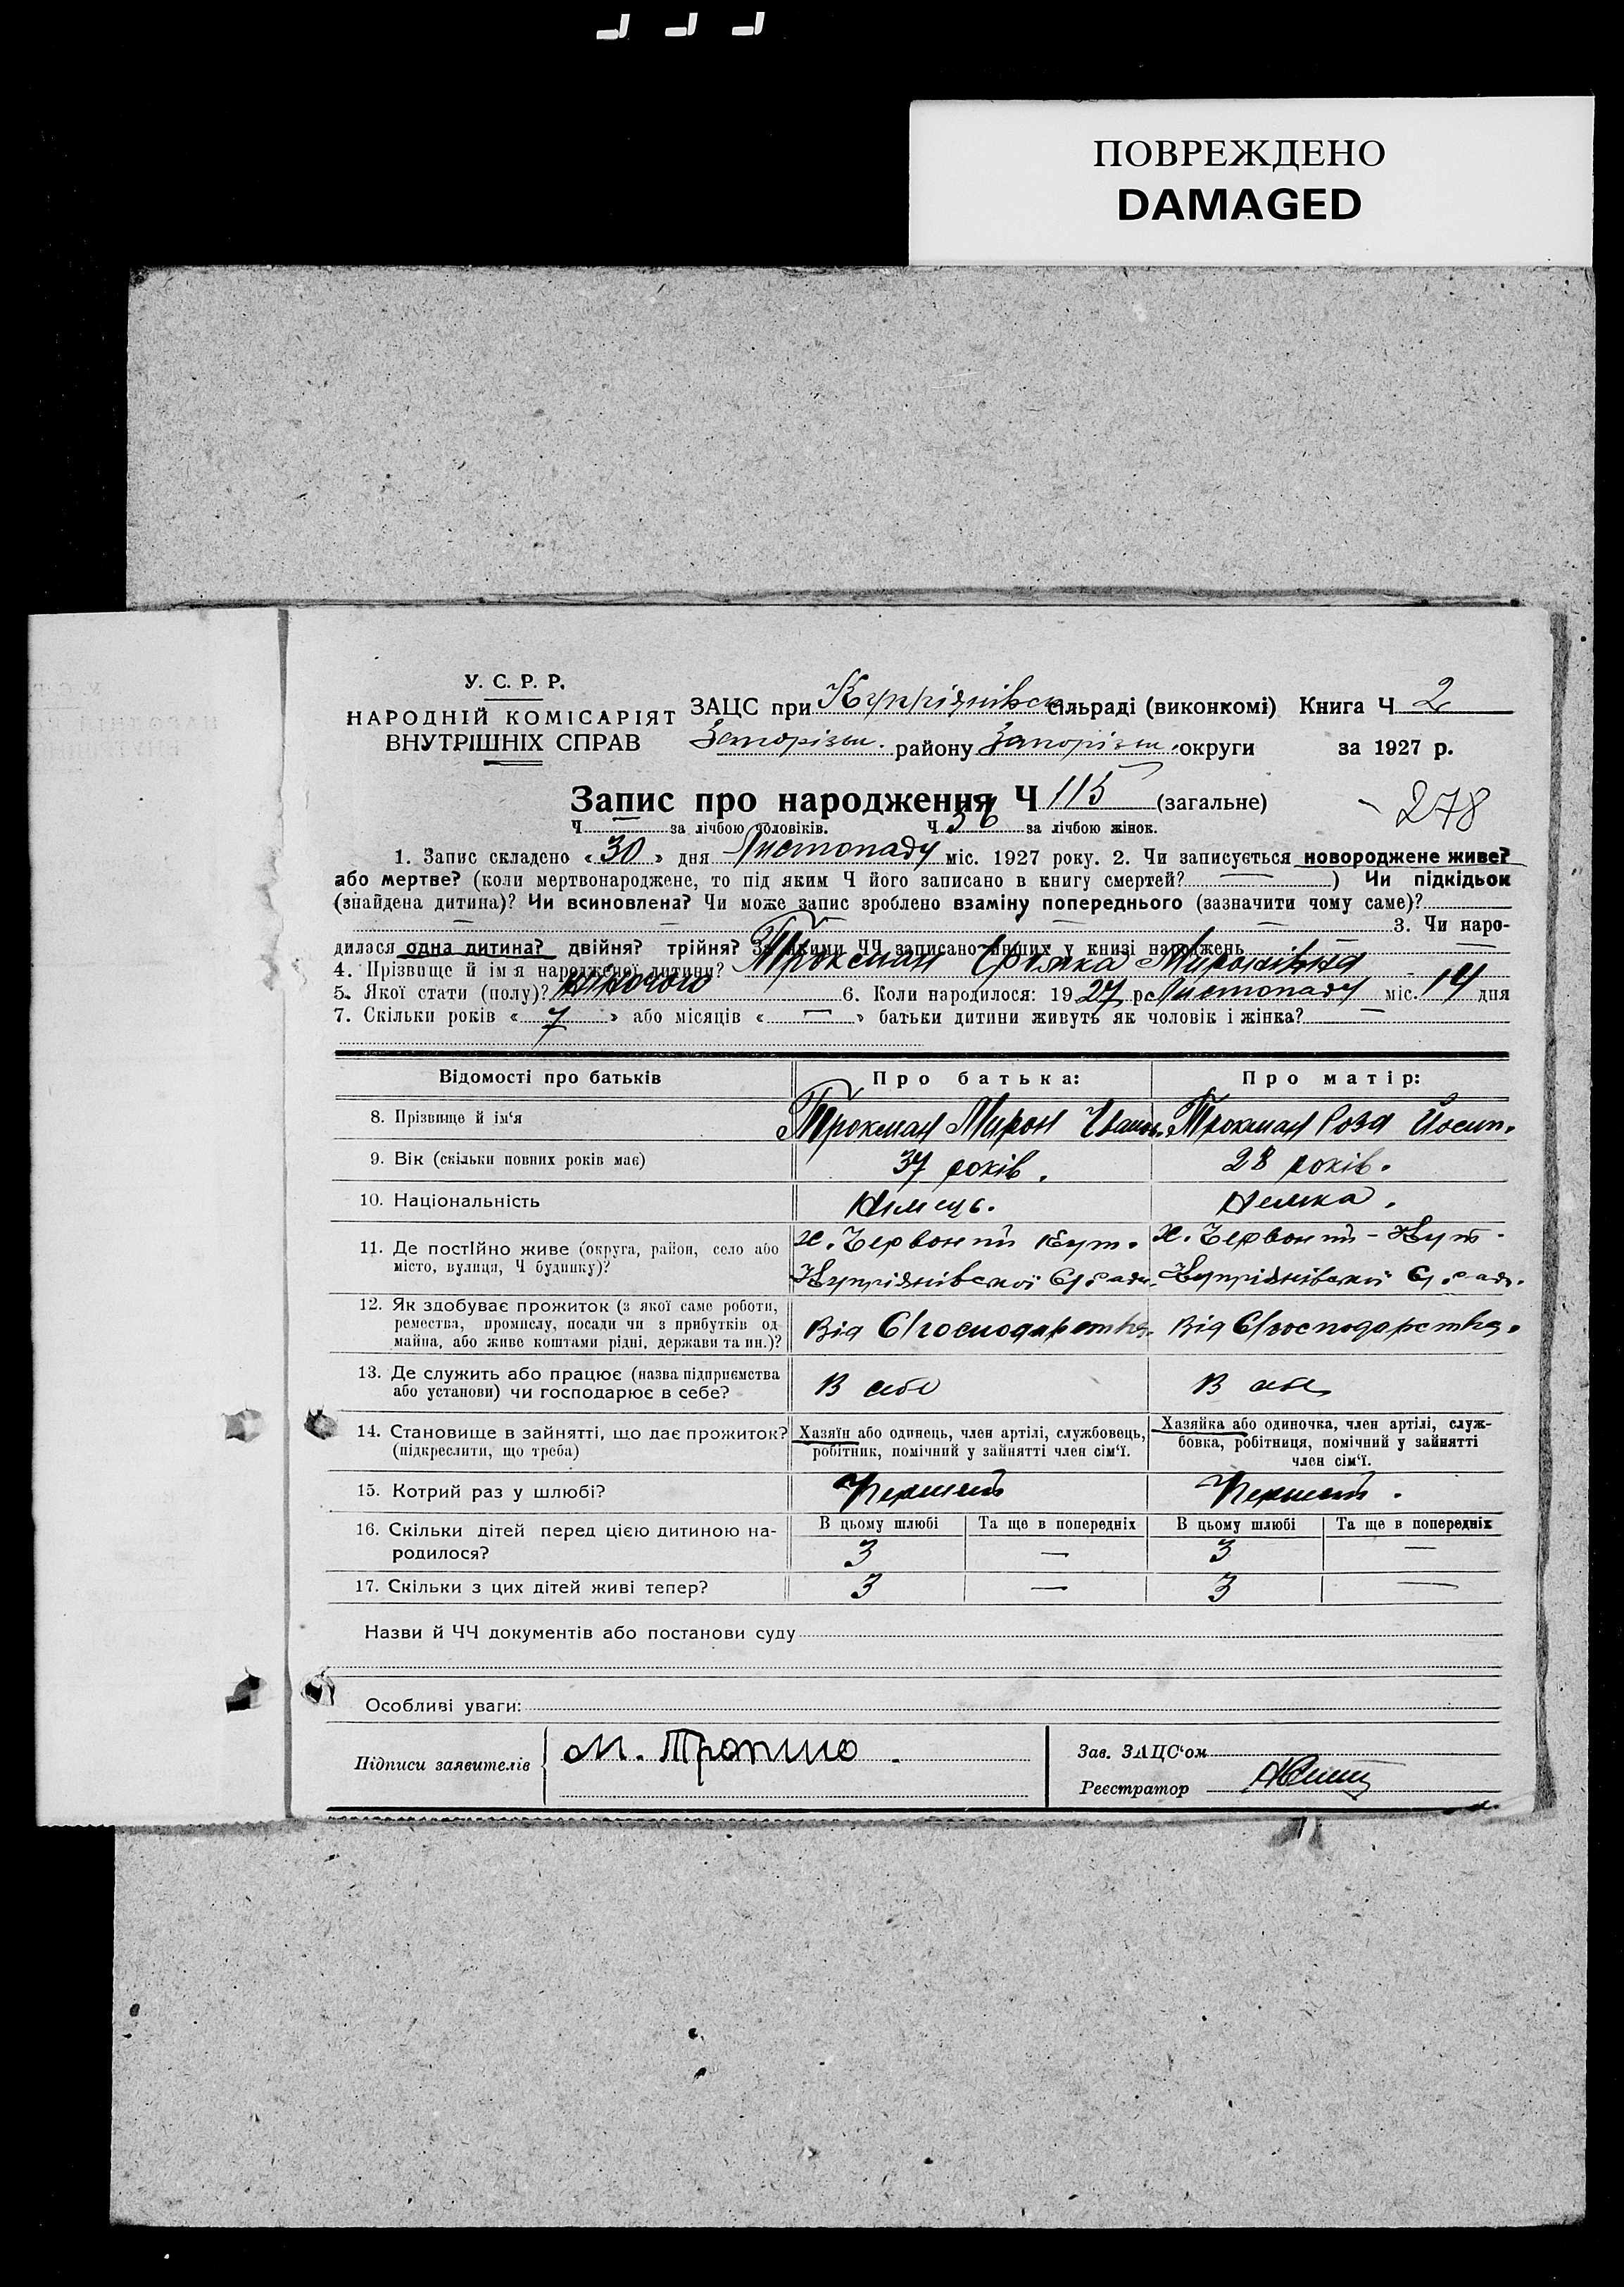 ПОВРЕЖДЕНО
DAMAGED
У. С. Р. Р.
НАРОДНІЙ КОМІСАРІЯТ
ВНУТРІШНІХ СПРАВ
ЗАЦС при Купріянівск сільраді (виконкомі) Книга Ч 2
Запорізьк. району Запорізьк. округи за 1927 р.
Запис про народження Ч 115 (загальне)
278
Ч — за лічбою чоловіків. Ч 56 за лічбою жінок.
1. Запис складено « 30 » дня Листопаду міс. 1927 року. 2. Чи записується новороджене живе?
або мертве? (коли мертвонароджене, то під яким Ч його записано в книгу смертей? — ) Чи підкідьок
(знайдена дитина)? Чи всиновлена? Чи може запис зроблено взаміну попереднього (зазначити чому саме)?
— — — 3. Чи наро-
дилася одна дитина? двійня? трійня? За якими ЧЧ записано інших у книзі народжень —
4. Прізвище й ім'я народженої дитини? Трокман Мironівна
5. Якої стати (полу)? жіночого 6. Коли народилося: 19 27 р Листопаду міс. 14 дня
7. Скільки років « 7 » або місяців « — » батьки дитини живуть як чоловік і жінка? —
Відомості про батьків Про батька: Про матір:
8. Прізвище й ім'я Трокман Мирон Іванов. Трокман Роза Йосип.
9. Вік (скільки повних років має) 37 років. 28 років.
10. Національність Німець. Немка.
11. Де постійно живе (округа, район, село або х. Червоний Кут. х. Червоний-Кут.
місто, вулиця, Ч будинку)? Купріянівської С/ради. Купріянівської С/рад.
12. Як здобуває прожиток (з якої саме роботи,
ремества, промислу, посади чи з прибутків од Від С/господарства. Від С/господарства.
майна, або живе коштами рідні, держави та ин.)?
13. Де служить або працює (назва підприємства
або установи) чи господарює в себе? В себе В себе
14. Становище в зайнятті, що дає прожиток? Хазяїн або одинець, член артілі, службовець, Хазяйка або одиночка, член артілі, служ-
(підкреслити, що треба) робітник, помічний у зайнятті член сім'ї. бовка, робітниця, помічний у зайнятті
член сім'ї.
15. Котрий раз у шлюбі? Перший Перший.
16. Скільки дітей перед цією дитиною на- В цьому шлюбі Та ще в попередніх В цьому шлюбі Та ще в попередніх
родилося? 3 — 3 —
17. Скільки з цих дітей живі тепер? 3 — 3 —
Назви й ЧЧ документів або постанови суду
Особливі уваги:
Підписи заявителів М. Зав. ЗАЦС'ом
Реєстратор